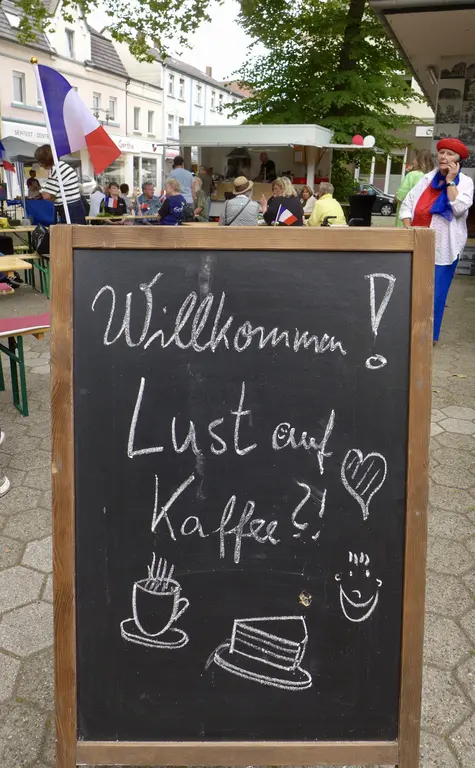 Willkommen!
Lust auf
Kaffee?!